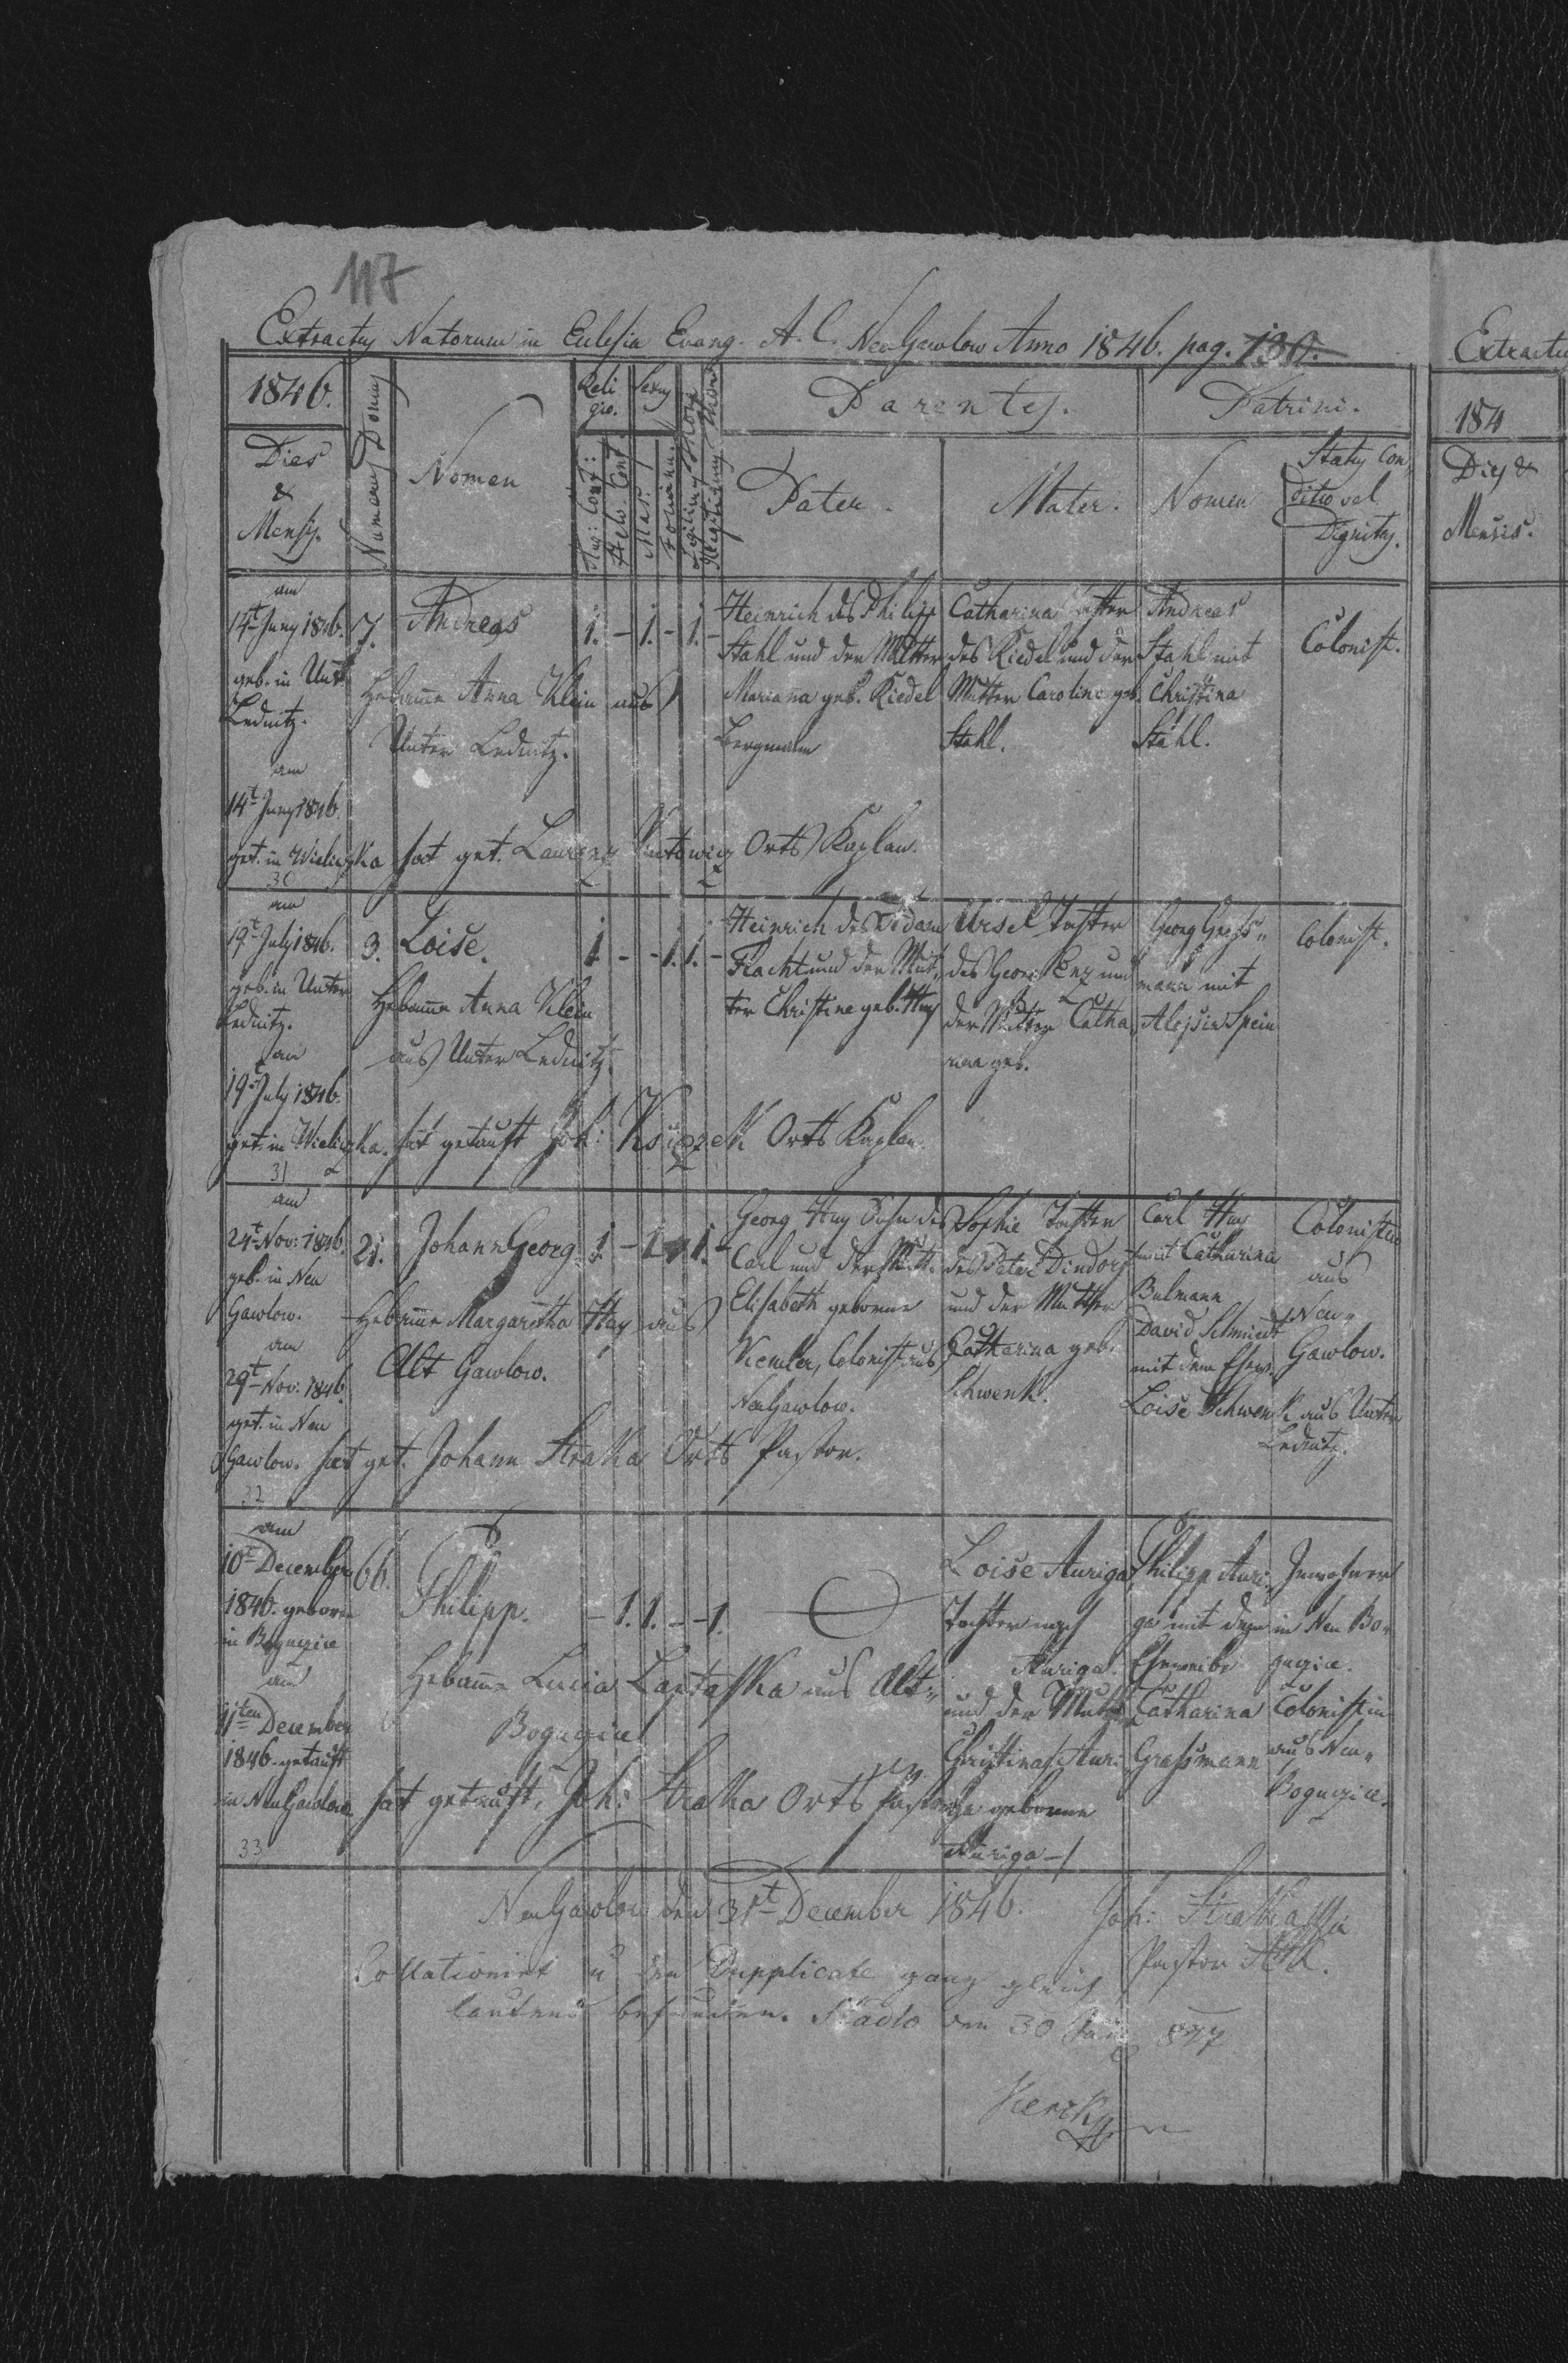 117
Extractus Natorum in Eclesia Evang. A. C. NeuGawlow Anno 1846. pag. 130.
1846.
Dies
&
Mensis.
Numerus Domus
Nomen
Reli
gio.
Aug: Conf:
Helv. Conf.
Sexus
Mas.
Foemin.
Legitimi Thori
Illegitimi Thori
Parentes.
Pater.
Mater.
Patrini.
Nomen
Status Con
ditio vel
Dignitas.
am
14t Juny 1846.
geb. in Unt
Lednitz.
am
14t Juny 1846.
get. in Wieliczka hat get. Laurenz Orts Kaplan.
30
7.
Andreas
Hebamme Anna Klein aus
Unter Lednitz.
1. - 1. - 1. -
Heinrich des Philipp
Stahl und der Mutter
Mariana geb. Riedel
Bergmann
Catharina Tochter
des Riedel und der
Mutter Carolina geb.
Stahl.
Andreas
Stahl mit
Christina
Stahl.
Colonist.
am
19t July 1846.
geb. in Unter
Lednitz.
am
19t July 1846.
get. in Wieliczka. hat getauft Joh: Książek Orts Kaplan.
31
3.
Loise.
Hebamme Anna Klein
aus Unter Lednitz.
1. - - 1. 1. -
Heinrich des Adam
Flacht und der Mut
ter Christine geb. Hay
Ursel Tochter
des Georg Enz und
der Mutter Catha
rina geb.
Georg Gross„
mann mit
Spein
Colonist.
am
24t Nov: 1846.
geb. in Neu
Gawlow.
am
29t Nov: 1846
get. in Neu
Gawlow. hat get. Johann Stralka Orts Pastor.
32
21.
Johann Georg.
Hebamme Margaretha Hay aus
Alt Gawlow.
1. - 1. - 1. -
Georg Hay Sohn des
Carl und der Mutt.
Elisabeth geborne
Kemler, Colonist aus
NeuGawlow.
Sophie Tochter
des Peter Dindorf
und der Mutter
Catharina geb.
Schwenk.
Carl Hay
mit Catharina
Bulmann
David Schmidt
mit dem Ehew.
Loise Schwenk aus Unter
Lednitz.
Colonisten
aus
Neu„
Gawlow.
am
10t December
1846. geboren
in Bogucice
am
11ten December
1846. getauft
in NeuGawlow hat getauft, Joh: Stralka Orts Pastor
33
66.
Philipp.
Hebamme Lucia aus Alt„
Bogucice
- 1. 1. - - 1.
Loise Auriga
Tochter nach
Auriga.
und der Mutter
Christina Auri
ga geborne
Auriga
Philipp Auri„
ga mit dem
Eheweibe
Catharina
Grassmann
Inwohner
in Neu Bo„
gucice.
Colonistin
aus Neu„
Bogucice.
NeuGawlow den 31t December 1846. Joh: Stralka
Pastor
Collationirt u den Dupplicate ganz gleich
lautend befunden. Stadlo den 30 Jan 847
Extractus
184
Dies &
Mensis.